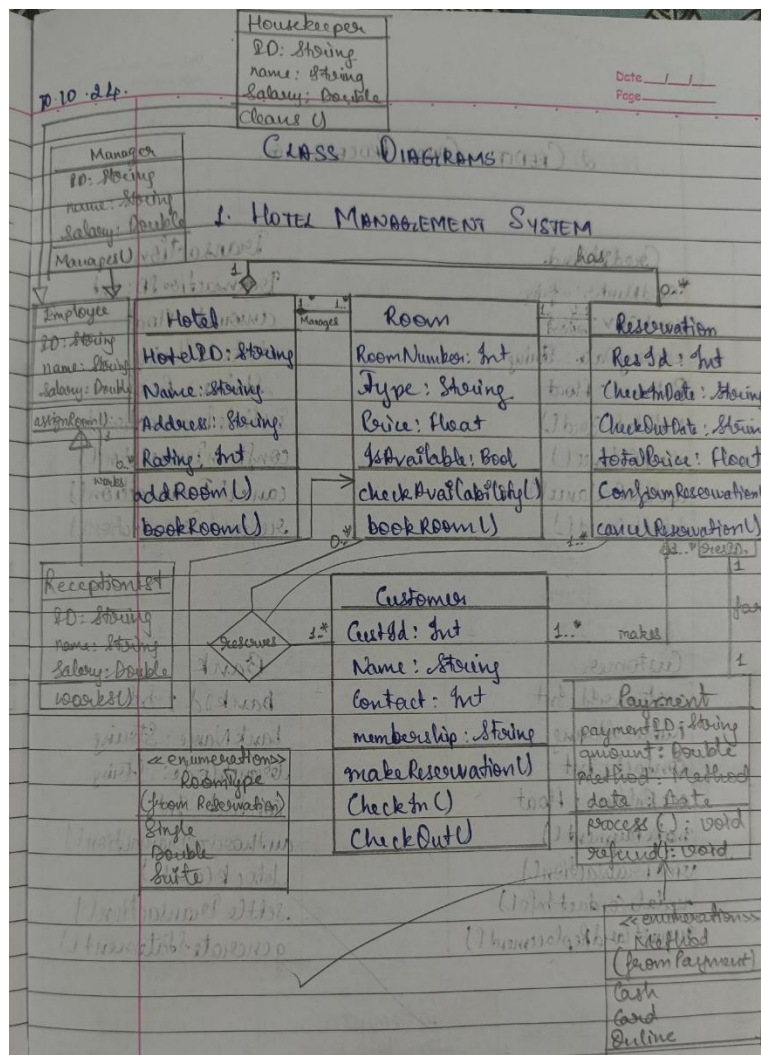 Housekeeper
ID: String
name: String
Salary: Double
Cleans ()
Date
Page
10.10.24.
CLASS DIAGRAMS
Manager
ID: String
name: String
Salary: Double
Manages()
1. HOTEL MANAGEMENT SYSTEM
1
has
0..*
Employee
ID: String
name: String
Salary: Double
assignRoom()
1
works
Hotel
HotelID: String
Name: String
Address: String
Rating: Int
addRoom()
bookRoom()
1..* 1..*
Manages
Room
RoomNumber: Int
Type: String
Price: Float
IsAvailable: Bool
checkAvailability()
bookRoom()
Reservation
ResId: Int
CheckInDate: String
CheckOutDate: String
totalPrice: Float
ConfirmReservation(
cancelReservation()
0..*
1..*
1..*
ResID
1
for
1
Receptionist
ID: String
name: String
Salary: Double
works()
reserves
1..*
Customer
CustId: Int
Name: String
Contact: Int
membership: String
makeReservation()
CheckIn()
CheckOut()
1..*
makes
Payment
paymentID: String
amount: Double
method: Method
data: Date
process(): void
refund(): void
<<enumerations>>
RoomType
(from Reservation)
Single
Double
Suite
<<enumerations>>
Method
(from Payment)
Cash
Card
Online